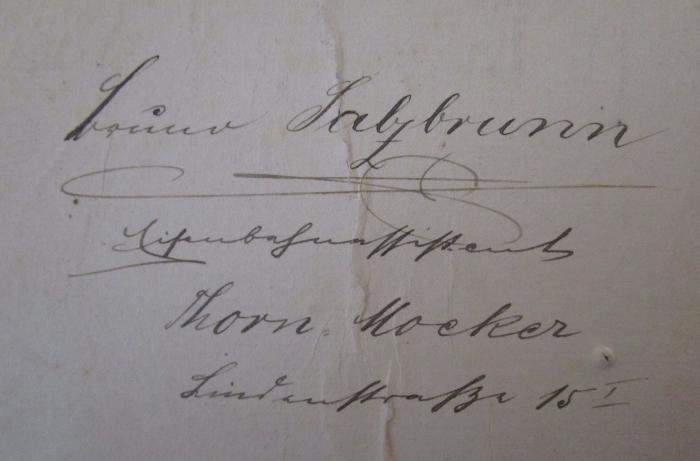 Bruno Salzbrunn
Eisenbahnassistent
Thorn-Mocker
Lindenstraße 15 I